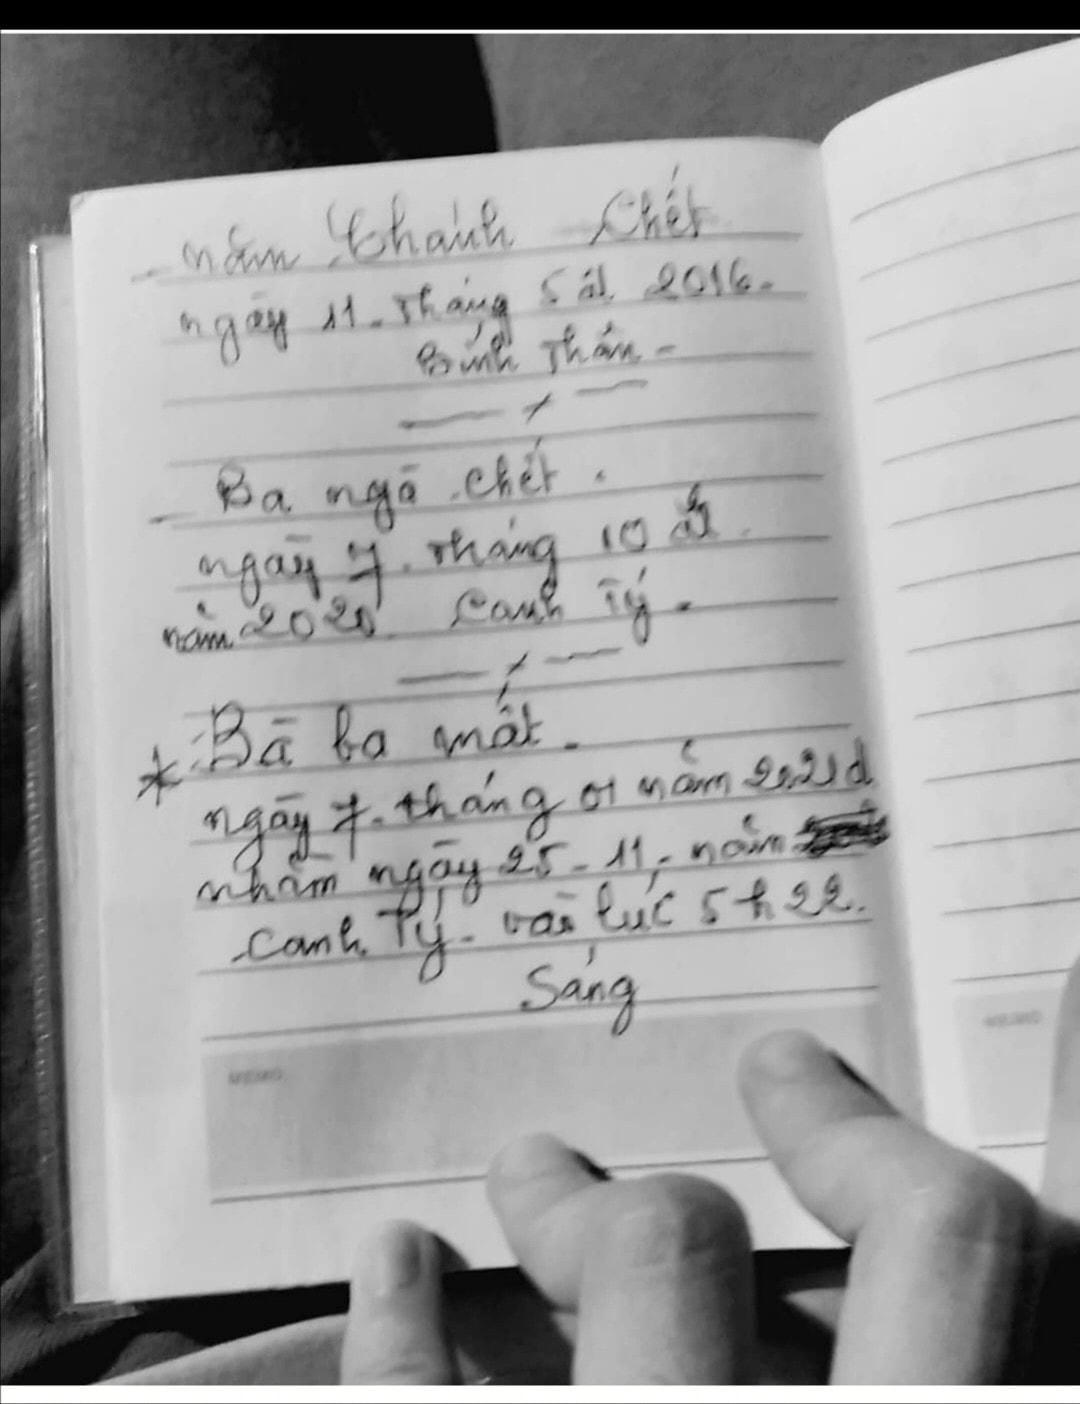 - năm Khánh chết
ngày 11. tháng 5 ál 2016.
Bính Thân -
Ba ngã chết.
ngày 7. tháng 10 ál.
năm 2020. Canh Tý.
* Bà ba mất.
ngày 7. tháng 01 năm 2021 d
nhằm ngày 25-11, năm
canh Tý. vào lúc 5h22.
Sáng
MEMO
MEMO